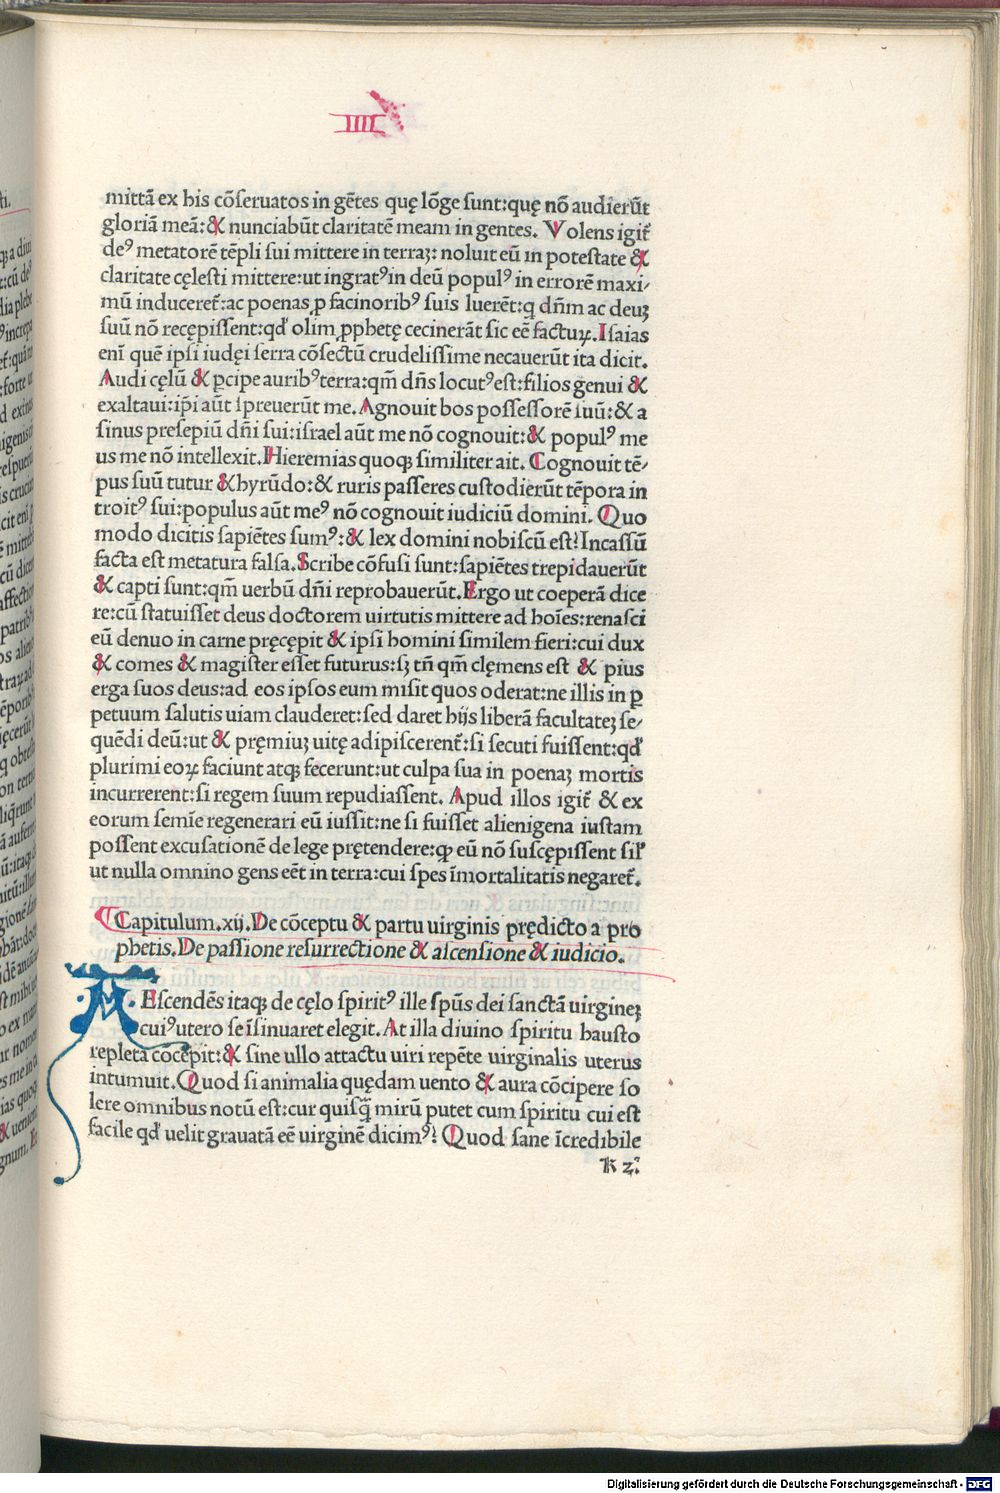 IIII
mittā ex his cōseruatos in gētes quę lōge sunt:quę nō audierūt
gloriā meā:& nunciabūt claritatē meam in gentes. Volens igit᷑
deꝰ metatorē tēpli sui mittere in terraꝫ: noluit eū in potestate &
claritate cęlesti mittere:ut ingratꝰ in deū populꝰ in errorē maxi/
mū induceret᷑:ac poenas ꝓ facinoribꝰ suis luerēt:q dn̄m ac deuꝫ
suū nō recępissent:qđ olim ꝓphetę cecinerāt sic eē factuꝝ. Isaias
enī quē ipsi iudęi serra cōsectū crudelissime necauerūt ita dicit.
Audi cęlū & ꝑcipe auribꝰ terra:qm̄ dn̄s locutꝰ est:filios genui &
exaltaui:ip̄i aūt īpreuerūt me. Agnouit bos possessorē suū:& a
sinus presepiū dn̄i sui:israel aūt me nō cognouit:& populꝰ me
us me nō intellexit. Hieremias quoqꝫ similiter ait. Cognouit tē/
pus suū tutur & hyrūdo:& ruris passeres custodierūt tēpora in
troitꝰ sui:populus aūt meꝰ nō cognouit iudiciū domini. Quo
modo dicitis sapiētes sumꝰ:& lex domini nobiscū est? Incassū
facta est metatura falsa. Scribe cōfusi sunt:sapiētes trepidauerūt
& capti sunt:qm̄ uerbū dn̄i reprobauerūt. Ergo ut coeperā dice
re:cū statuisset deus doctorem uirtutis mittere ad hoīes:renasci
eū denuo in carne pręcępit & ipsi homini similem fieri:cui dux
& comes & magister esset futurus:sꝫ tn̄ qm̄ clęmens est & pius
erga suos deus:ad eos ipsos eum misit quos oderat:ne illis in ꝑ
petuum salutis uiam clauderet:sed daret hijs liberā facultateꝫ se/
quēdi deū:ut & pręmiuꝫ uitę adipiscerent᷑:si secuti fuissent:qđ
plurimi eoꝝ faciunt atqꝫ fecerunt:ut culpa sua in poenaꝫ mortis
incurrerent:si regem suum repudiassent. Apud illos igit᷑ & ex
eorum semīe regenerari eū iussit:ne si fuisset alienigena iustam
possent excusationē de lege prętendere:qꝫ eū nō suscępissent sil̄
ut nulla omnino gens eēt in terra:cui spes īmortalitatis negaret᷑.
Capitulum.xij. De cōceptu & partu uirginis prędicto a pro
phetis. De passione resurrectione & ascensione & iudicio.
DEscendēs itaqꝫ de cęlo spiritꝰ ille sp̄us dei sanctā uirgineꝫ
cuiꝰ utero se īsinuaret elegit. At illa diuino spiritu hausto
repleta cōcepit:& sine ullo attactu uiri repēte uirginalis uterus
intumuit. Quod si animalia quędam uento & aura cōcipere so
lere omnibus notū est:cur quisq̄ mirū putet cum spiritu cui est
facile qđ uelit grauatā eē uirginē dicimꝰ? Quod sane īcredibile
K 2
Digitalisierung gefördert durch die Deutsche Forschungsgemeinschaft - DFG